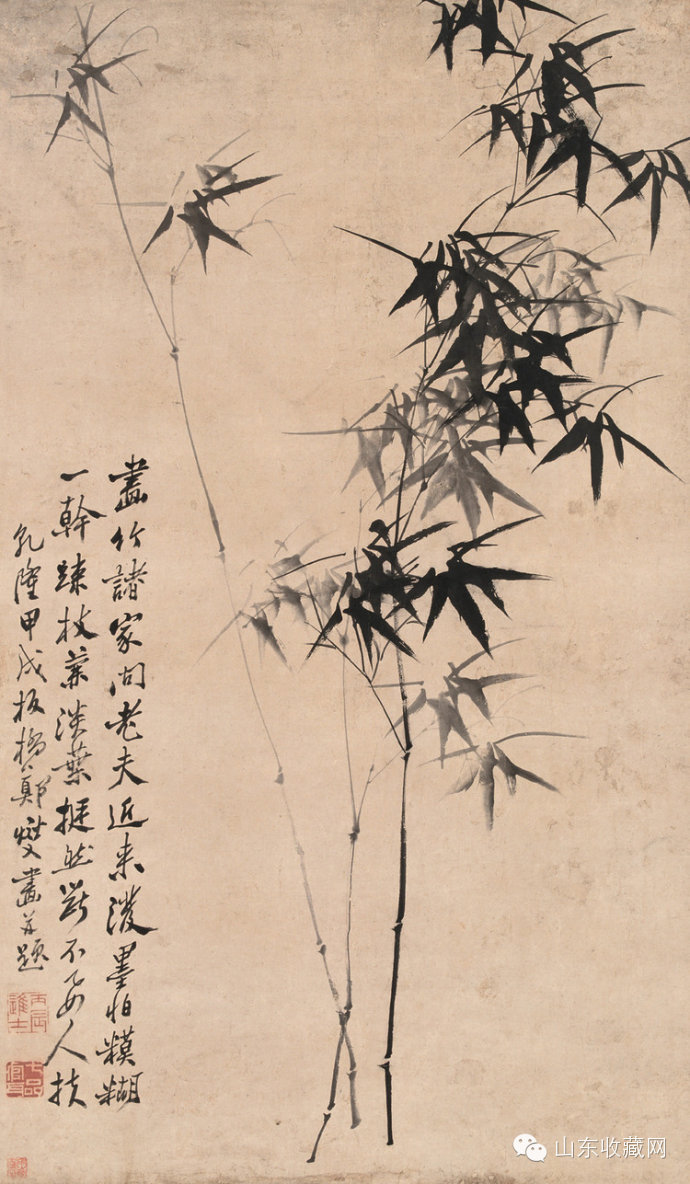 畫竹諸家問老夫近來潑墨怕糢糊
一幹疎枝兼淡葉挺然斷不要人扶
乾隆甲戌板橋鄭燮畫并題
丙辰進士
七品官耳
山东收藏网